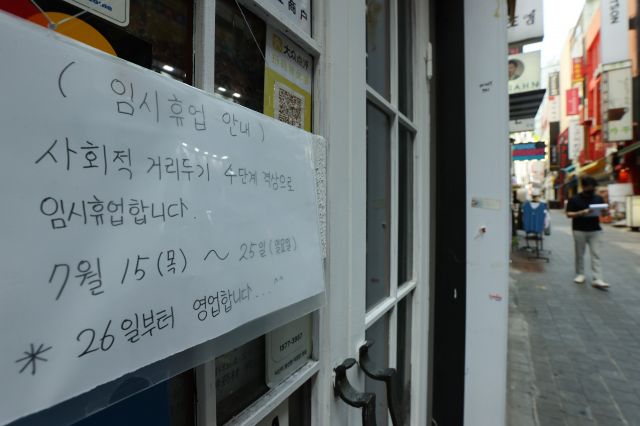 ( 임시휴업 안내 )
사회적 거리두기 4단계 격상으로
임시휴업합니다.
7월 15(목) ~ 25일(일요일)
* 26일부터 영업합니다...^^
1577-3957